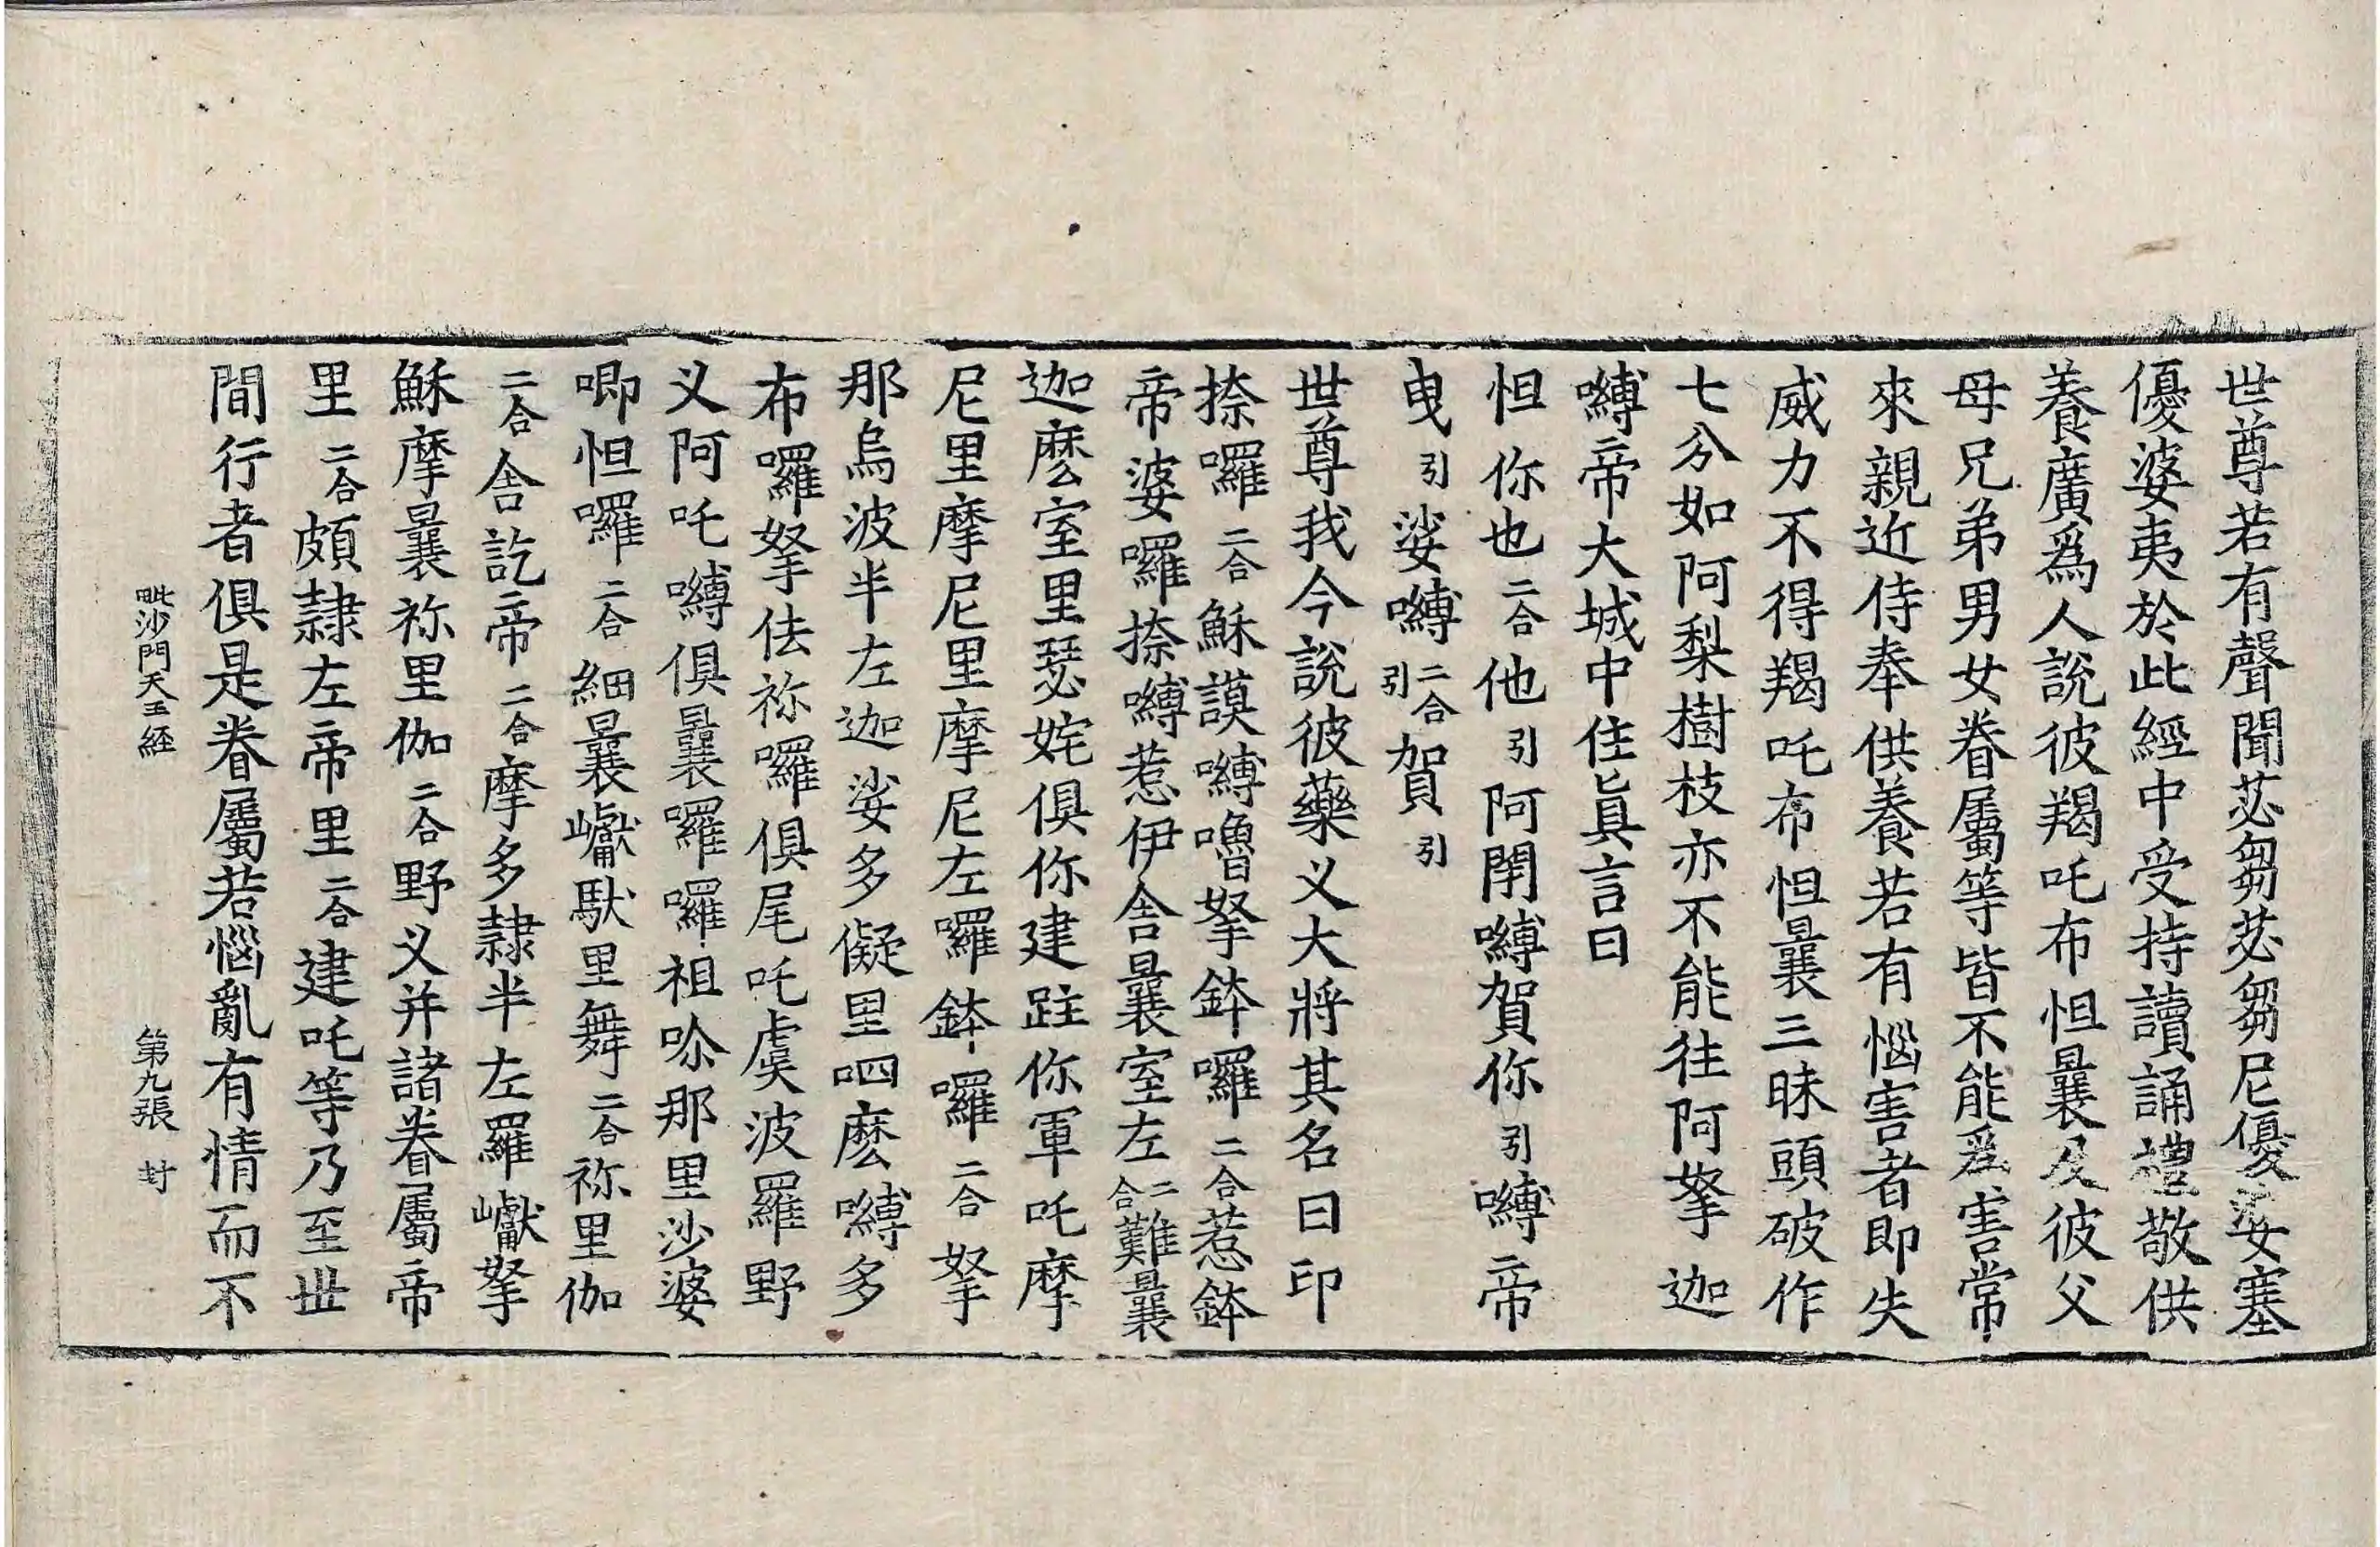 世尊若有聲聞苾芻苾芻尼優婆塞
優婆夷於此經中受持讀誦禮敬供
養廣爲人說彼羯吒布怛曩及彼父
母兄弟男女眷屬等皆不能爲害常
來親近侍奉供養若有惱害者即失
威力不得羯吒布怛曩三昧頭破作
七分如阿梨樹枝亦不能往阿拏迦
嚩帝大城中住眞言曰
怛你也二合他引阿閉嚩賀你引嚩帝
曳引娑嚩二合引賀引
世尊我今說彼藥义大將其名曰印
捺囉二合穌謨嚩嚕拏鉢囉二合惹鉢
帝婆囉捺嚩惹伊舍曩室左二合難曩
迦麽室里瑟姹俱你建跓你軍吒摩
尼里摩尼里摩尼左囉鉢囉二合拏
那烏波半左迦娑多儗里呬麽嚩多
布囉拏佉祢囉俱尾吒虞波羅野
义阿吒嚩俱曩囉囉祖哆那里沙婆
唧怛囉二合細曩巘馱里舞二合祢里伽
二合舍訖帝二合摩多隷半左羅巘拏
穌摩曩祢里伽二合野义并諸眷屬帝
里二合頗隷左帝里二合建吒等乃至世
間行者俱是眷屬若惱亂有情而不
毗沙門天王経　第九張　封